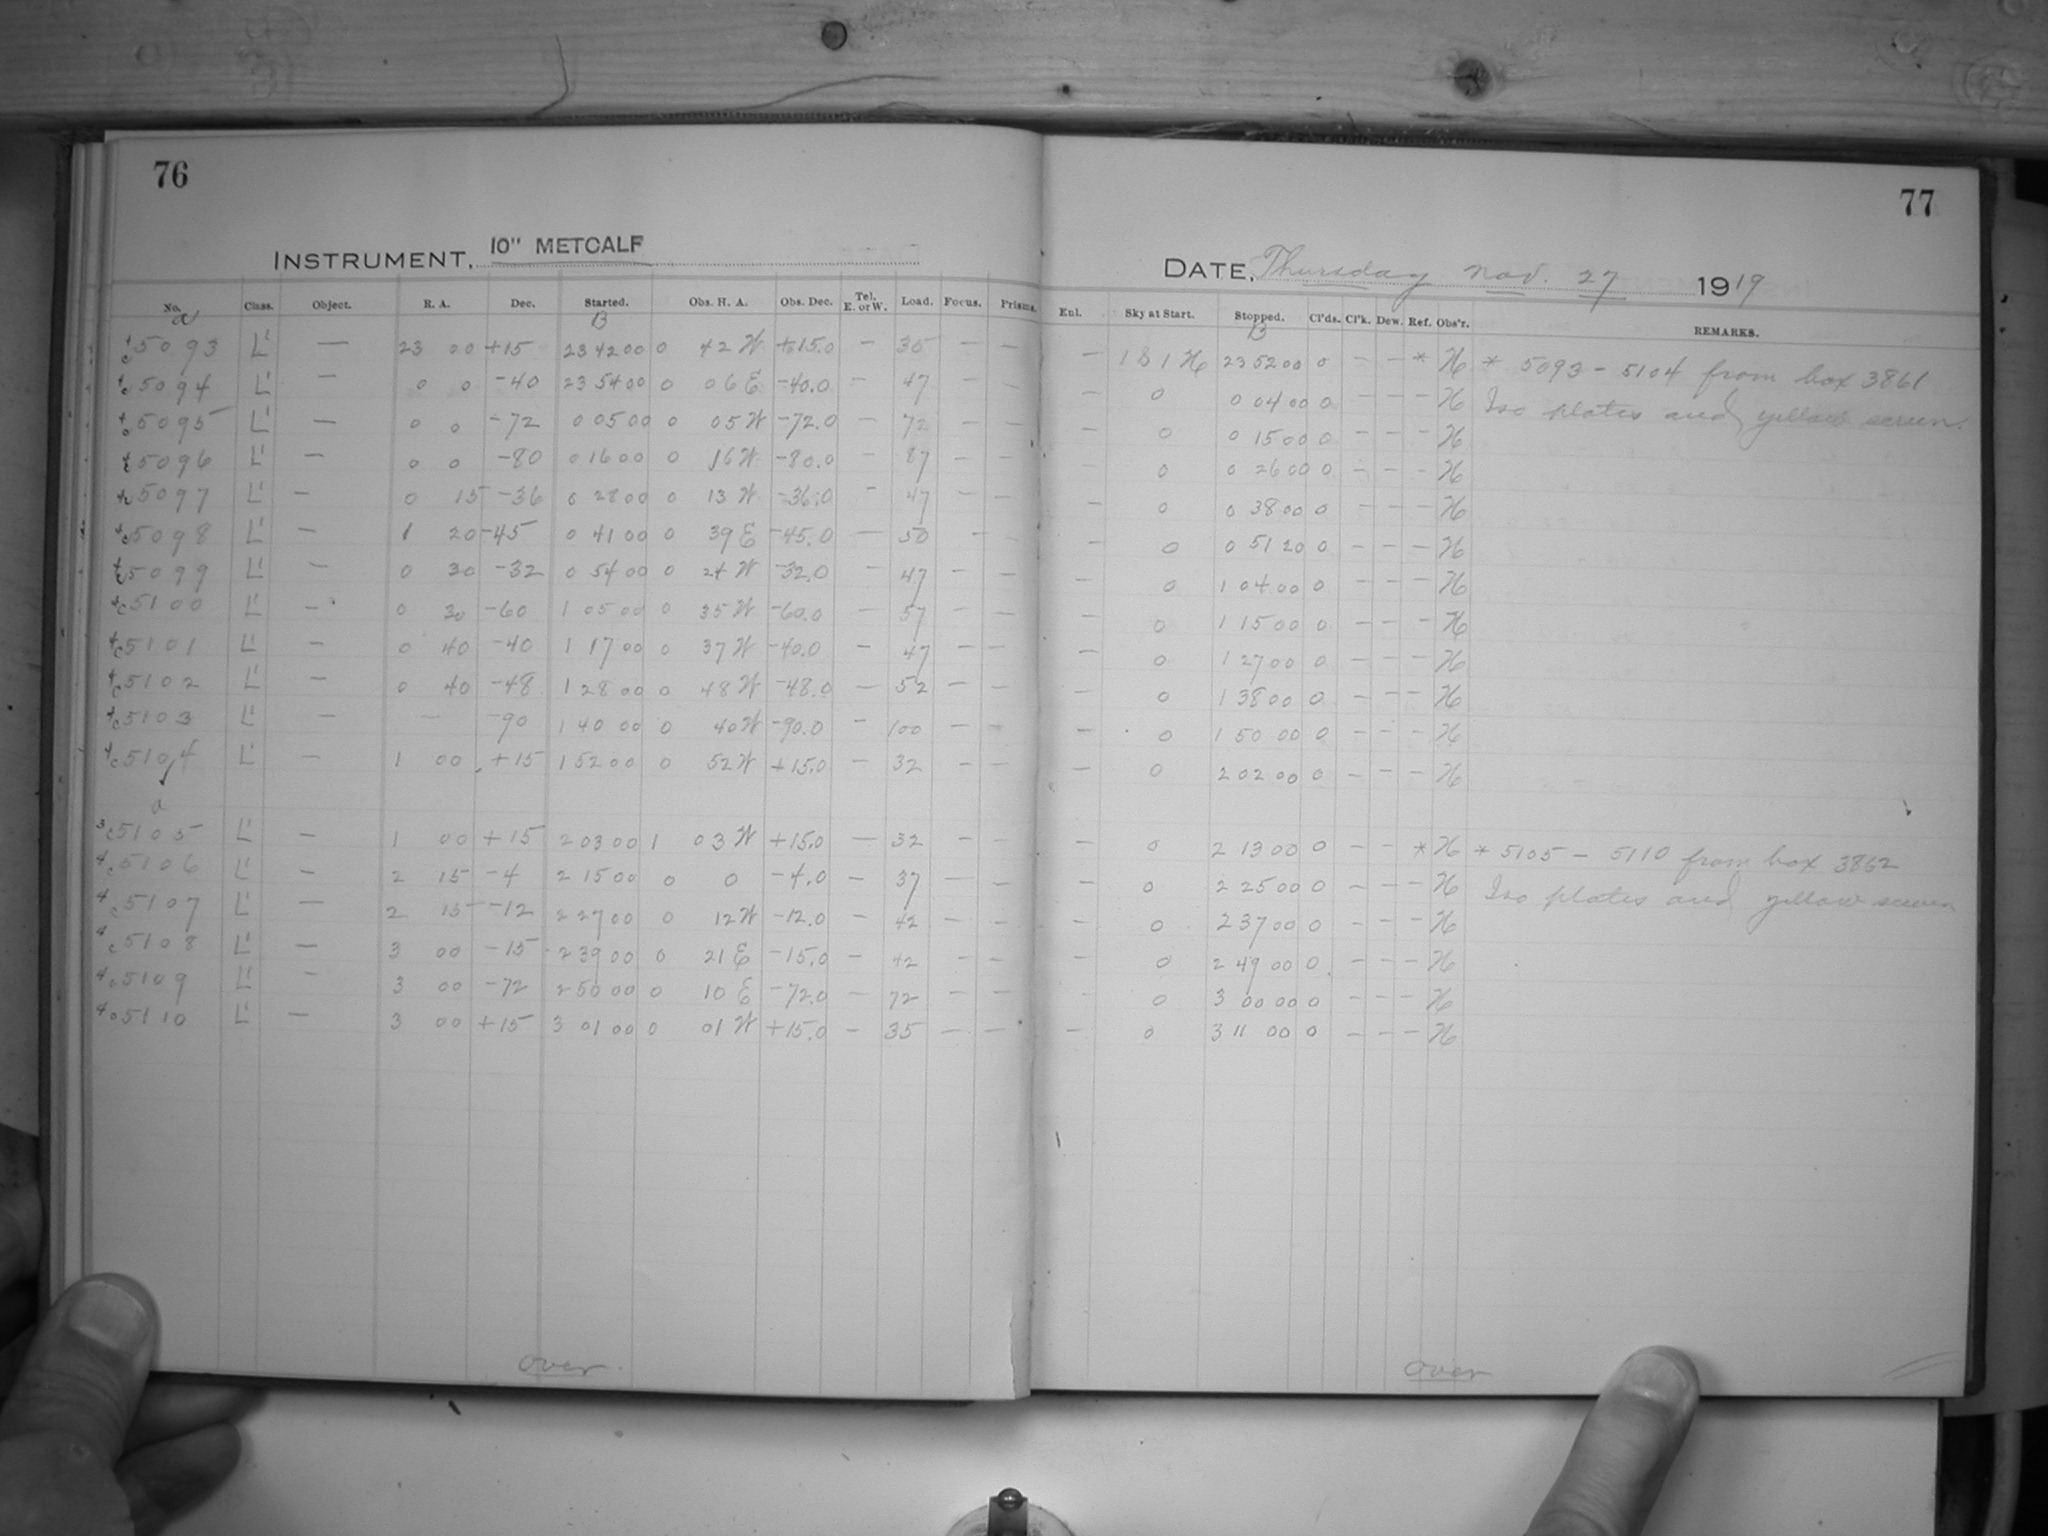 76
77
INSTRUMENT, 10" METCALF
DATE, Thursday Nov. 27 1919
No. Class. Object. R. A. Dec. Started. Obs. H. A. Obs. Dec. Tel. E. or W. Load. Focus. Prisms. Enl. Sky at Start. Stopped. Cl'ds. Cl'k. Dew. Ref. Obs'r. REMARKS.
a B B
5093 L' — 23 00 +15 23 42 00 0 42 W +15.0 — 35 — — — 1 8 1 H 23 52 00 0 — — * H * 5093 – 5104 from box 3861
5094 L' — 0 0 -40 23 54 00 0 06 E -40.0 — 47 — — — 0 0 04 00 0 — — — H Iso plates and yellow screen.
5095 L' — 0 0 -72 0 05 00 0 05 W -72.0 — 72 — — — 0 0 15 00 0 — — — H
5096 L' — 0 0 -80 0 16 00 0 16 W -80.0 — 87 — — — 0 0 26 00 0 — — — H
5097 L' — 0 15 -36 0 28 00 0 13 W -36.0 — 47 — — — 0 0 38 00 0 — — — H
5098 L' — 1 20 -45 0 41 00 0 39 E -45.0 — 50 — — — 0 0 51 20 0 — — — H
5099 L' — 0 30 -32 0 54 00 0 24 W -32.0 — 47 — — — 0 1 04 00 0 — — — H
5100 L' — 0 30 -60 1 05 00 0 35 W -60.0 — 57 — — — 0 1 15 00 0 — — — H
5101 L' — 0 40 -40 1 17 00 0 37 W -40.0 — 47 — — — 0 1 27 00 0 — — — H
5102 L' — 0 40 -48 1 28 00 0 48 W -48.0 — 52 — — — 0 1 38 00 0 — — — H
5103 L' — — -90 1 40 00 0 40 W -90.0 — 100 — — — 0 1 50 00 0 — — — H
5104 L' — 1 00 +15 1 52 00 0 52 W +15.0 — 32 — — — 0 2 02 00 0 — — — H
a
5105 L' — 1 00 +15 2 03 00 1 03 W +15.0 — 32 — — — 0 2 13 00 0 — — * H * 5105 – 5110 from box 3862
5106 L' — 2 15 -4 2 15 00 0 0 -4.0 — 37 — — — 0 2 25 00 0 — — — H Iso plates and yellow screen
5107 L' — 2 15 -12 2 27 00 0 12 W -12.0 — 42 — — — 0 2 37 00 0 — — — H
5108 L' — 3 00 -15 2 39 00 0 21 E -15.0 — 42 — — — 0 2 49 00 0 — — — H
5109 L' — 3 00 -72 2 50 00 0 10 E -72.0 — 72 — — — 0 3 00 00 0 — — — H
5110 L' — 3 00 +15 3 01 00 0 01 W +15.0 — 35 — — — 0 3 11 00 0 — — — H
over
over